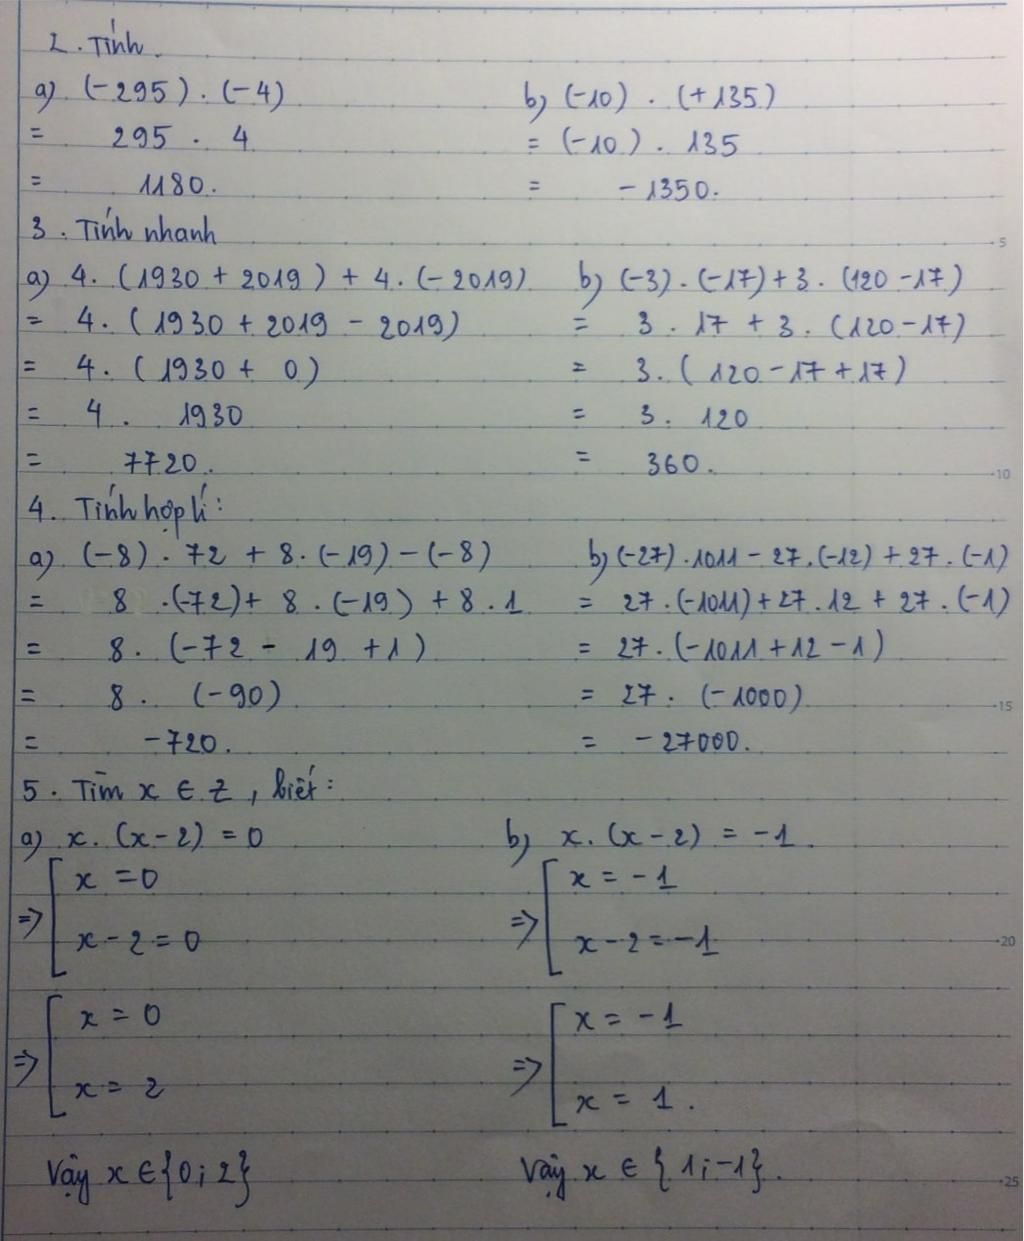 2. Tính.
a) (-295). (-4)
= 295 . 4
= 1180.
b) (-10) . (+135)
= (-10) . 135
= -1350.
3. Tính nhanh
a) 4. (1930 + 2019) + 4. (-2019)
= 4. (1930 + 2019 - 2019)
= 4. (1930 + 0)
= 4 . 1930
= 7720.
b) (-3) . (-17) + 3 . (120 - 17)
= 3 . 17 + 3 . (120 - 17)
= 3. (120 - 17 + 17)
= 3. 120
= 360.
4. Tính hợp lí:
a) (-8) . 72 + 8. (-19) - (-8)
= 8 .(-72) + 8 . (-19) + 8 . 1
= 8. (-72 - 19 + 1)
= 8. (-90)
= -720.
b) (-27) .1011 - 27.(-12) + 27 . (-1)
= 27.(-1011) + 27 . 12 + 27 . (-1)
= 27. (-1011 + 12 - 1)
= 27. (-1000)
= -27000.
5. Tìm x ∈ Z, biết:
a) x. (x - 2) = 0
x = 0
=> [
x - 2 = 0
x = 0
=> [
x = 2
Vậy x ∈ {0; 2}
b) x. (x - 2) = -1.
x = -1
=> [
x - 2 = -1
x = -1
=> [
x = 1.
Vậy x ∈ {1; -1}.
5
10
15
20
25